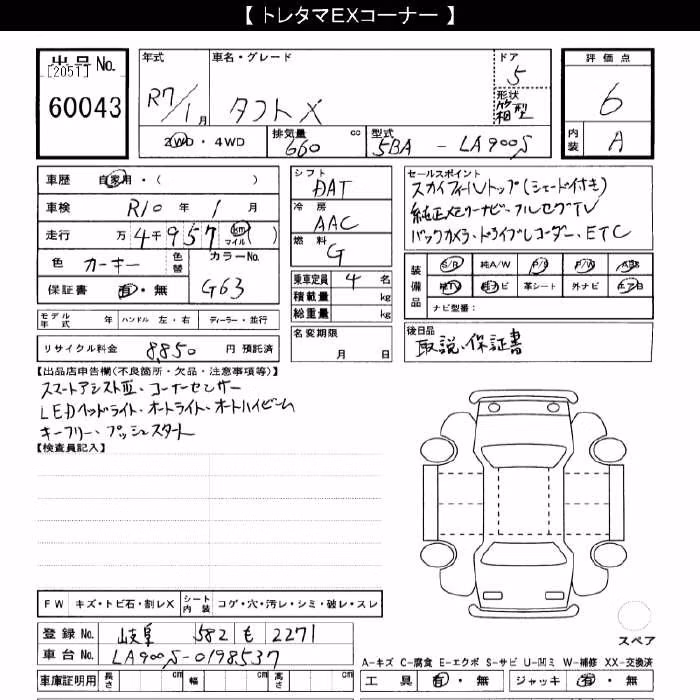 【 トレタマEXコーナー 】
出品 No.
[2051]
60043
年式
R7/1月
車名・グレード
タフト X
ドア
5
形状
箱型
評価点
6
内装 A
2WD・4WD
排気量 660 cc
型式 5BA - LA900S
車歴 自家用・( )
車検 R10年 1月
走行 万4千957 km マイル ( )
色 カーキー 色替
カラーNo.
G63
保証書 有・無
シフト
DAT
冷房
AAC
燃料
G
乗車定員 4 名
積載量 kg
総重量 kg
名変期限
月 日
セールスポイント
スカイフィールトップ(シェード付き)
純正メモリーナビ・フルセグTV
バックカメラ・ドライブレコーダー、ETC
装備品
S/R 純A/W P/S P/W ABS
純TV 純ナビ 革シート 外ナビ エアB
ナビ型番:
モデル年式 年 ハンドル 左・右 ディーラー・並行
リサイクル料金 8,850 円 預託済
後日品
取説・保証書
【出品店申告欄(不良箇所・欠品・注意事項等)】
スマートアシストⅢ、コーナーセンサー
LEDヘッドライト、オートライト、オートハイビーム
キーフリー、プッシュスタート
【検査員記入】
FW キズ・トビ石・割レX
シート内装 コゲ・穴・汚レ・シミ・破レ・スレ
登録 No. 岐阜 582 も 2271
車台 No. LA900S-0198537
車庫証明用 長さ cm 幅 cm 高さ cm
スペア
A-キズ C-腐食 E-エクボ S-サビ U-凹ミ W-補修 XX-交換済
工具 有・無 ジャッキ 有・無